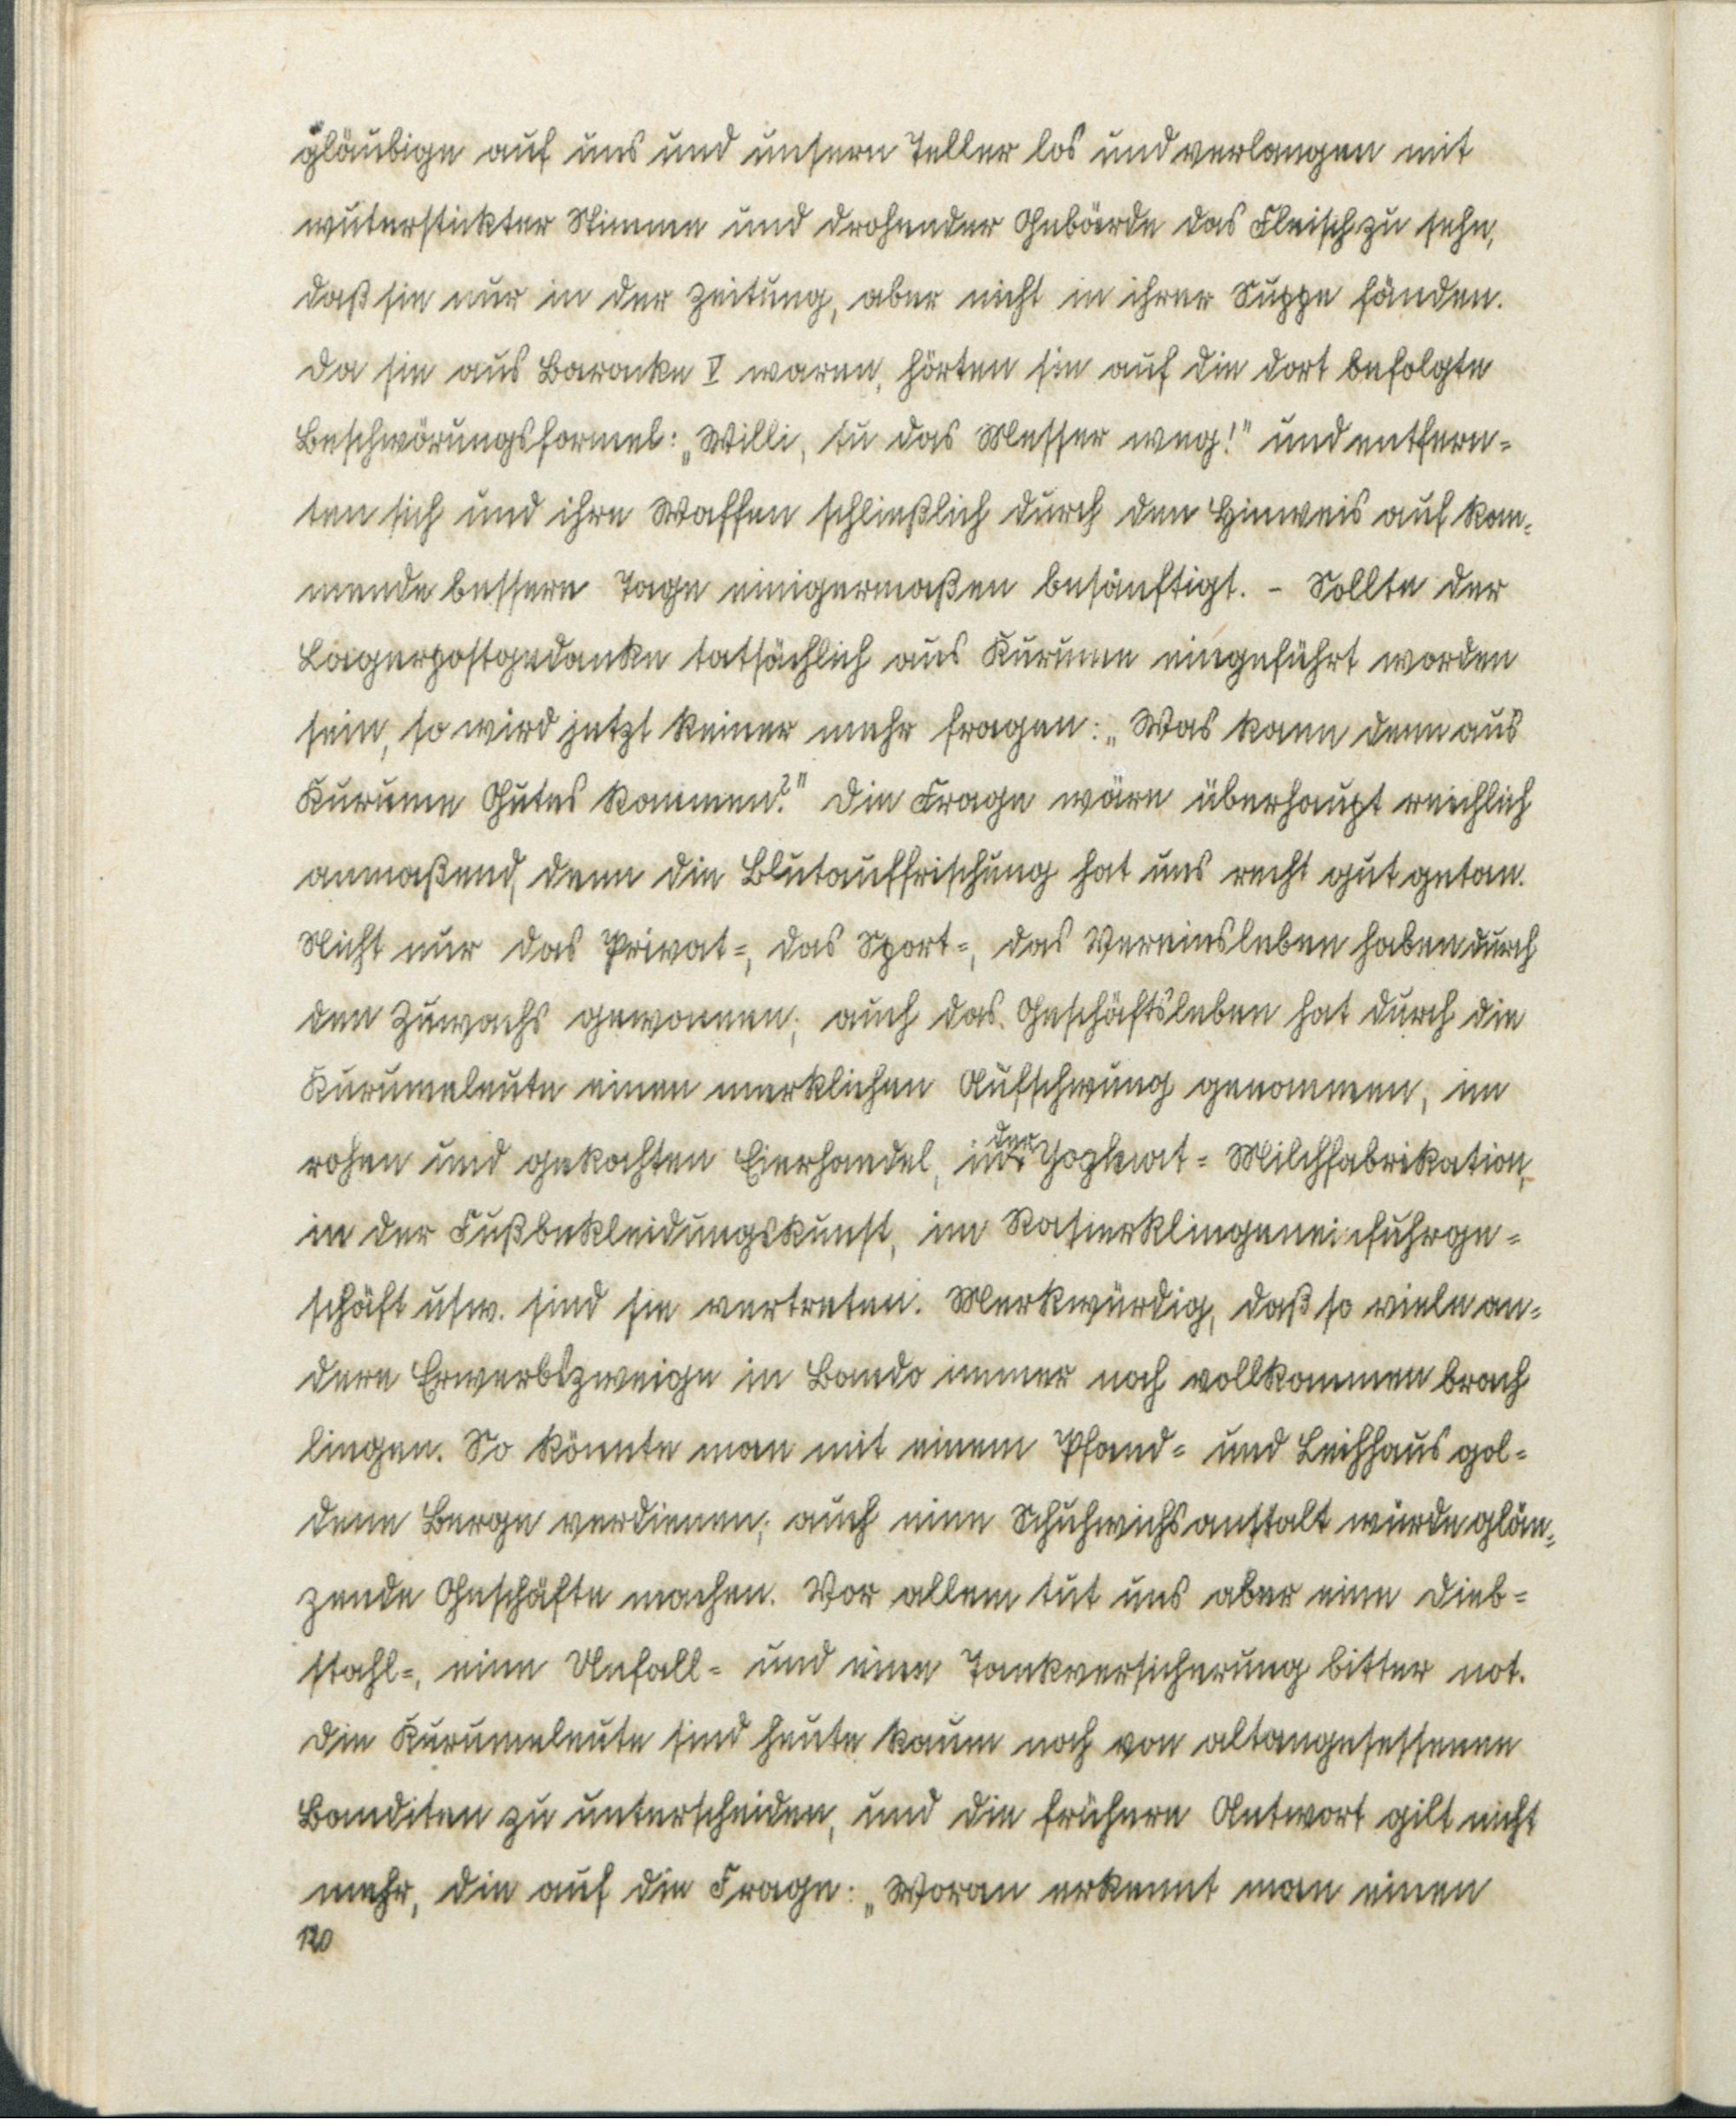 gläubige auf uns und unsern Teller los und verlangen mit
wuterstickter Stimme und drohender Gebärde das Fleisch zu sehn,
daß sie nur in der Zeitung, aber nicht in ihrer Suppe fänden.
Da sie aus Baracke V waren, hörten sie auf die dort befolgte
Beschwörungsformel: „Willi, tu das Messer weg!" und entfern=
ten sich und ihre Waffen schließlich durch den Hinweis auf kom=
mende bessere Tage einigermaßen besänftigt. - Sollte der
Lagerpostgedanke tatsächlich aus Kurume eingeführt worden
sein, so wird jetzt keiner mehr fragen: „Was kann denn aus
Kurume Gutes kommen?" Die Frage wäre überhaupt reichlich
anmaßend, denn die Blutauffrischung hat uns recht gut getan.
Nicht nur das Privat=, das Sport=, das Vereinsleben haben durch
den Zuwachs gewonnen; auch das Geschäftsleben hat durch die
Kurumeleute einen merklichen Aufschwung genommen, im
rohen und gekochten Eierhandel, in der Yoghurt=Milchfabrikation,
in der Fußbekleidungskunst, im Rasierklingeneinfuhrge=
schäft usw. sind sie vertreten. Merkwürdig, daß so viele an=
dere Erwerbszweige in Bando immer noch vollkommen brach
liegen. So könnte man mit einem Pfand= und Leihhaus gol=
dene Berge verdienen; auch eine Schuhwichsanstalt würde glän=
zende Geschäfte machen. Vor allem tut uns aber eine Dieb=
stahl=, eine Unfall= und eine Tankversicherung bitter not.
Die Kurumeleute sind heute kaum noch von altangesessenen
Banditen zu unterscheiden, und die frühere Antwort gilt nicht
mehr, die auf die Frage: „Woran erkennt man einen
120